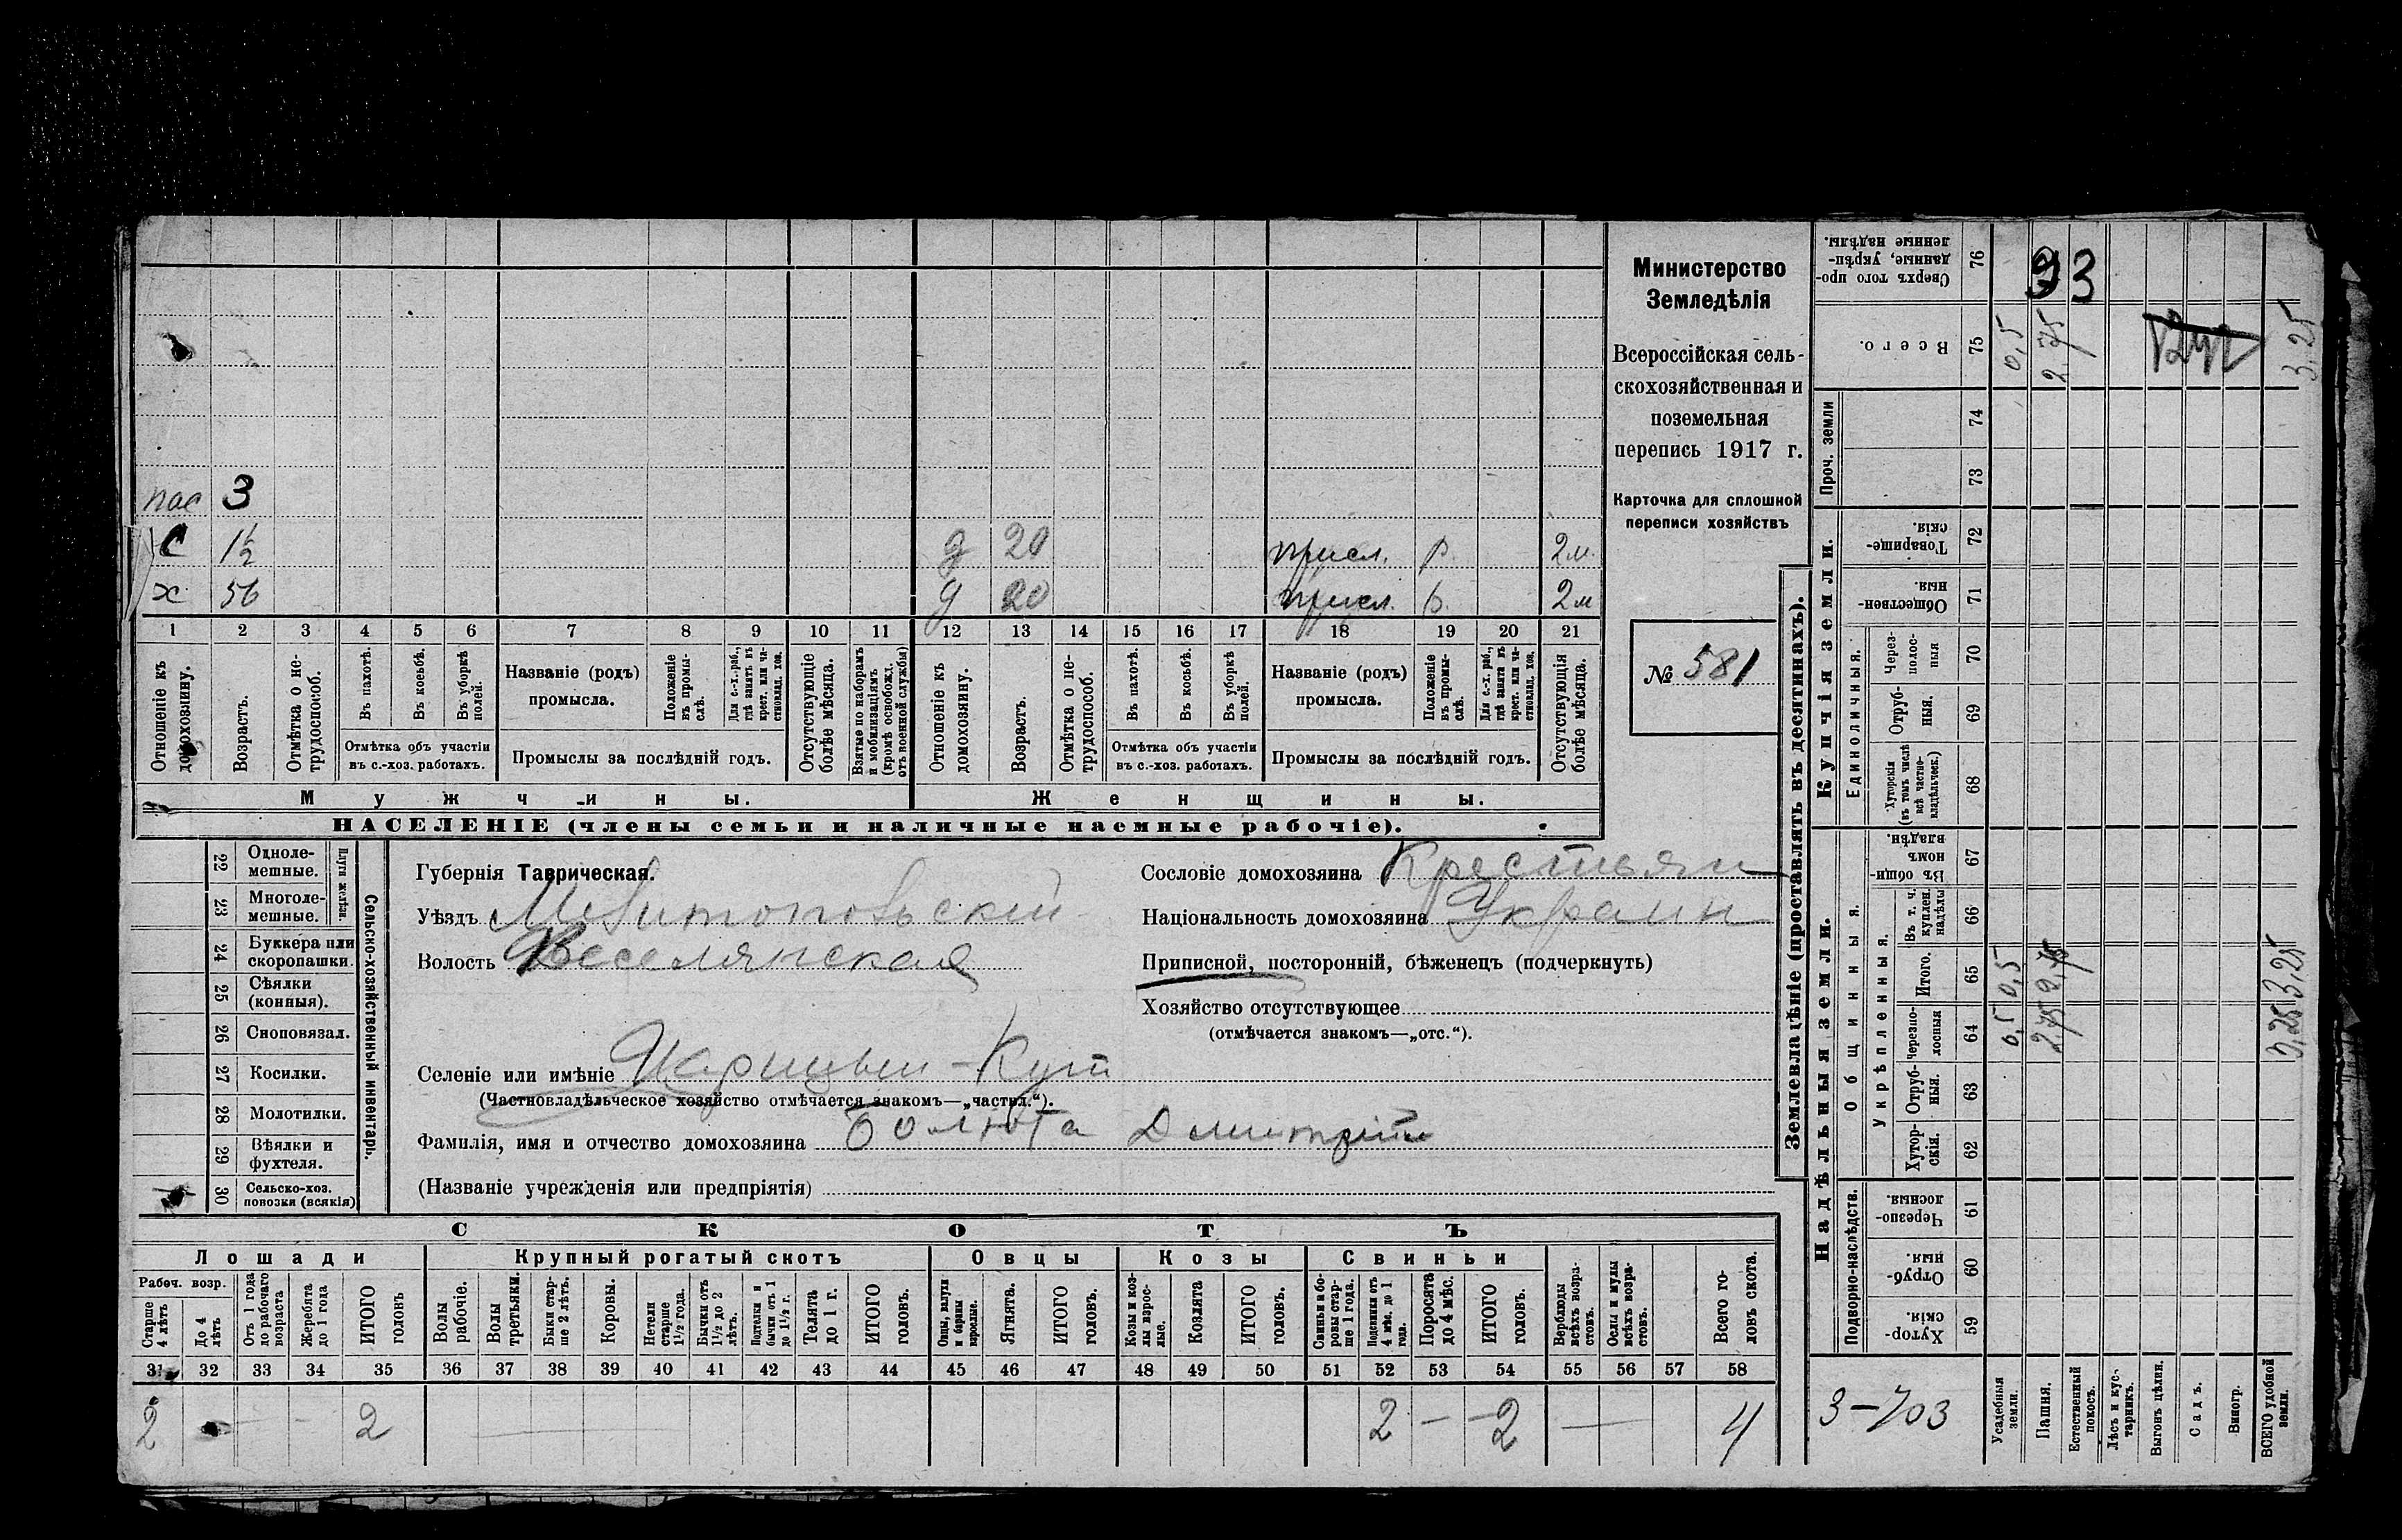 пас 3
С 1½ д 20 присл. р. 2 м.
х 56 д 20 присл. р. 2 м
1 2 3 4 5 6 7 8 9 10 11 12 13 14 15 16 17 18 19 20 21
Отношеніе къ домохозяину.
Возрастъ.
Отмѣтка о нетрудоспособ.
Въ пахотѣ.
Въ косьбѣ.
Въ уборкѣ полей.
Отмѣтка объ участіи въ с.-хоз. работахъ.
Названіе (родъ) промысла.
Положеніе въ промыслѣ.
Для с.-х. раб., гдѣ занятъ въ крест. или частновлад. хоз.
Промыслы за послѣдній годъ.
Отсутствующіе болѣе мѣсяца.
Взятые по наборамъ и мобилизаціямъ (кромѣ освобожд. отъ военной службы)
Отношеніе къ домохозяину.
Возрастъ.
Отмѣтка о нетрудоспособ.
Въ пахотѣ.
Въ косьбѣ.
Въ уборкѣ полей.
Отмѣтка объ участіи въ с.-хоз. работахъ.
Названіе (родъ) промысла.
Положеніе въ промыслѣ.
Для с.-х. раб., гдѣ занята въ крест. или частновлад. хоз.
Промыслы за послѣдній годъ.
Отсутствующія болѣе мѣсяца.
Мужчины. Женщины.
НАСЕЛЕНІЕ (члены семьи и наличные наемные рабочіе).
Министерство
Земледѣлія
Всероссійская сель-
скохозяйственная и
поземельная
перепись 1917 г.
Карточка для сплошной
переписи хозяйствъ
№ 581
22 Одноле-
мешные.
23 Многоле-
мешные.
Плуги желѣзн.
24 Буккера или
скоропашки.
25 Сѣялки
(конныя).
26 Сноповязал.
27 Косилки.
28 Молотилки.
29 Вѣялки и
фухтеля.
30 Сельско-хоз.
повозки (всякія)
Сельско-хозяйственный инвентарь.
Губернія Таврическая.
Уѣздъ Мелитопольскій
Волость Веселянская
Селеніе или имѣніе Царицын-Кут
(Частновладѣльческое хозяйство отмѣчается знакомъ—„частвл.“).
Фамилія, имя и отчество домохозяина Болюта Дмитрій
(Названіе учрежденія или предпріятія)
Сословіе домохозяина Крестьян
Національность домохозяина Украин
Приписной, посторонній, бѣженецъ (подчеркнуть)
Хозяйство отсутствующее
(отмѣчается знакомъ—„отс.“).
СКОТЪ
Лошади Крупный рогатый скотъ Овцы Козы Свиньи
Рабоч. возр.
Старше 4 лѣтъ
До 4 лѣтъ
Отъ 1 года до рабочаго возраста
Жеребята до 1 года
ИТОГО головъ
Волы рабочіе.
Волы третьяки.
Быки старше 2 лѣтъ.
Коровы.
Нетели старше 1½ года.
Бычки отъ 1½ до 2 лѣтъ.
Подтелки и бычки отъ 1 до 1½ г.
Телята до 1 г.
ИТОГО головъ.
Овцы, валухи и бараны взрослые.
Ягнята.
ИТОГО головъ.
Козы и козлы взрослые.
Козлята
ИТОГО головъ.
Свиньи и боровы старше 1 года.
Подсвинки отъ 4 мѣс. до 1 года.
Поросята до 4 мѣс.
ИТОГО головъ.
Верблюды всѣхъ возрастовъ.
Ослы и мулы всѣхъ возрастовъ.
Всего головъ скота.
31 32 33 34 35 36 37 38 39 40 41 42 43 44 45 46 47 48 49 50 51 52 53 54 55 56 57 58
2 - - 2 — 2 - - 2 — 4
Землевладѣніе (проставлять въ десятинахъ).
Купчія земли.
Надѣльныя земли.
Сверхъ того проданные, укрѣпленные надѣлы. 76 93
Всего. 75 0,5 2,75 3,25
Проч. земли 74
73
Товарищескія. 72
Общественныя 71
Единоличныя.
Черезполосныя 70
Отрубныя. 69
Хуторскія (въ томъ числѣ всѣ частновладѣльческ.) 68
Общинныя.
Въ общинномъ владѣн. 67
Укрѣпленныя.
Въ т. ч. куплен. надѣлы 66
Итого. 65 0,5 2,75 3,25
Черезполосныя 64 0,5 2,75 3,25
Отрубныя. 63
Хуторскія. 62
Подворно-наслѣдств.
Черезполосныя. 61
Отрубныя. 60
Хуторскія 59
3-703
Усадебныя земли.
Пашня.
Естественный покосъ.
Лѣсъ и кустарникъ.
Выгонъ цѣлин.
Садъ.
Виногр.
ВСЕГО удобной земли.